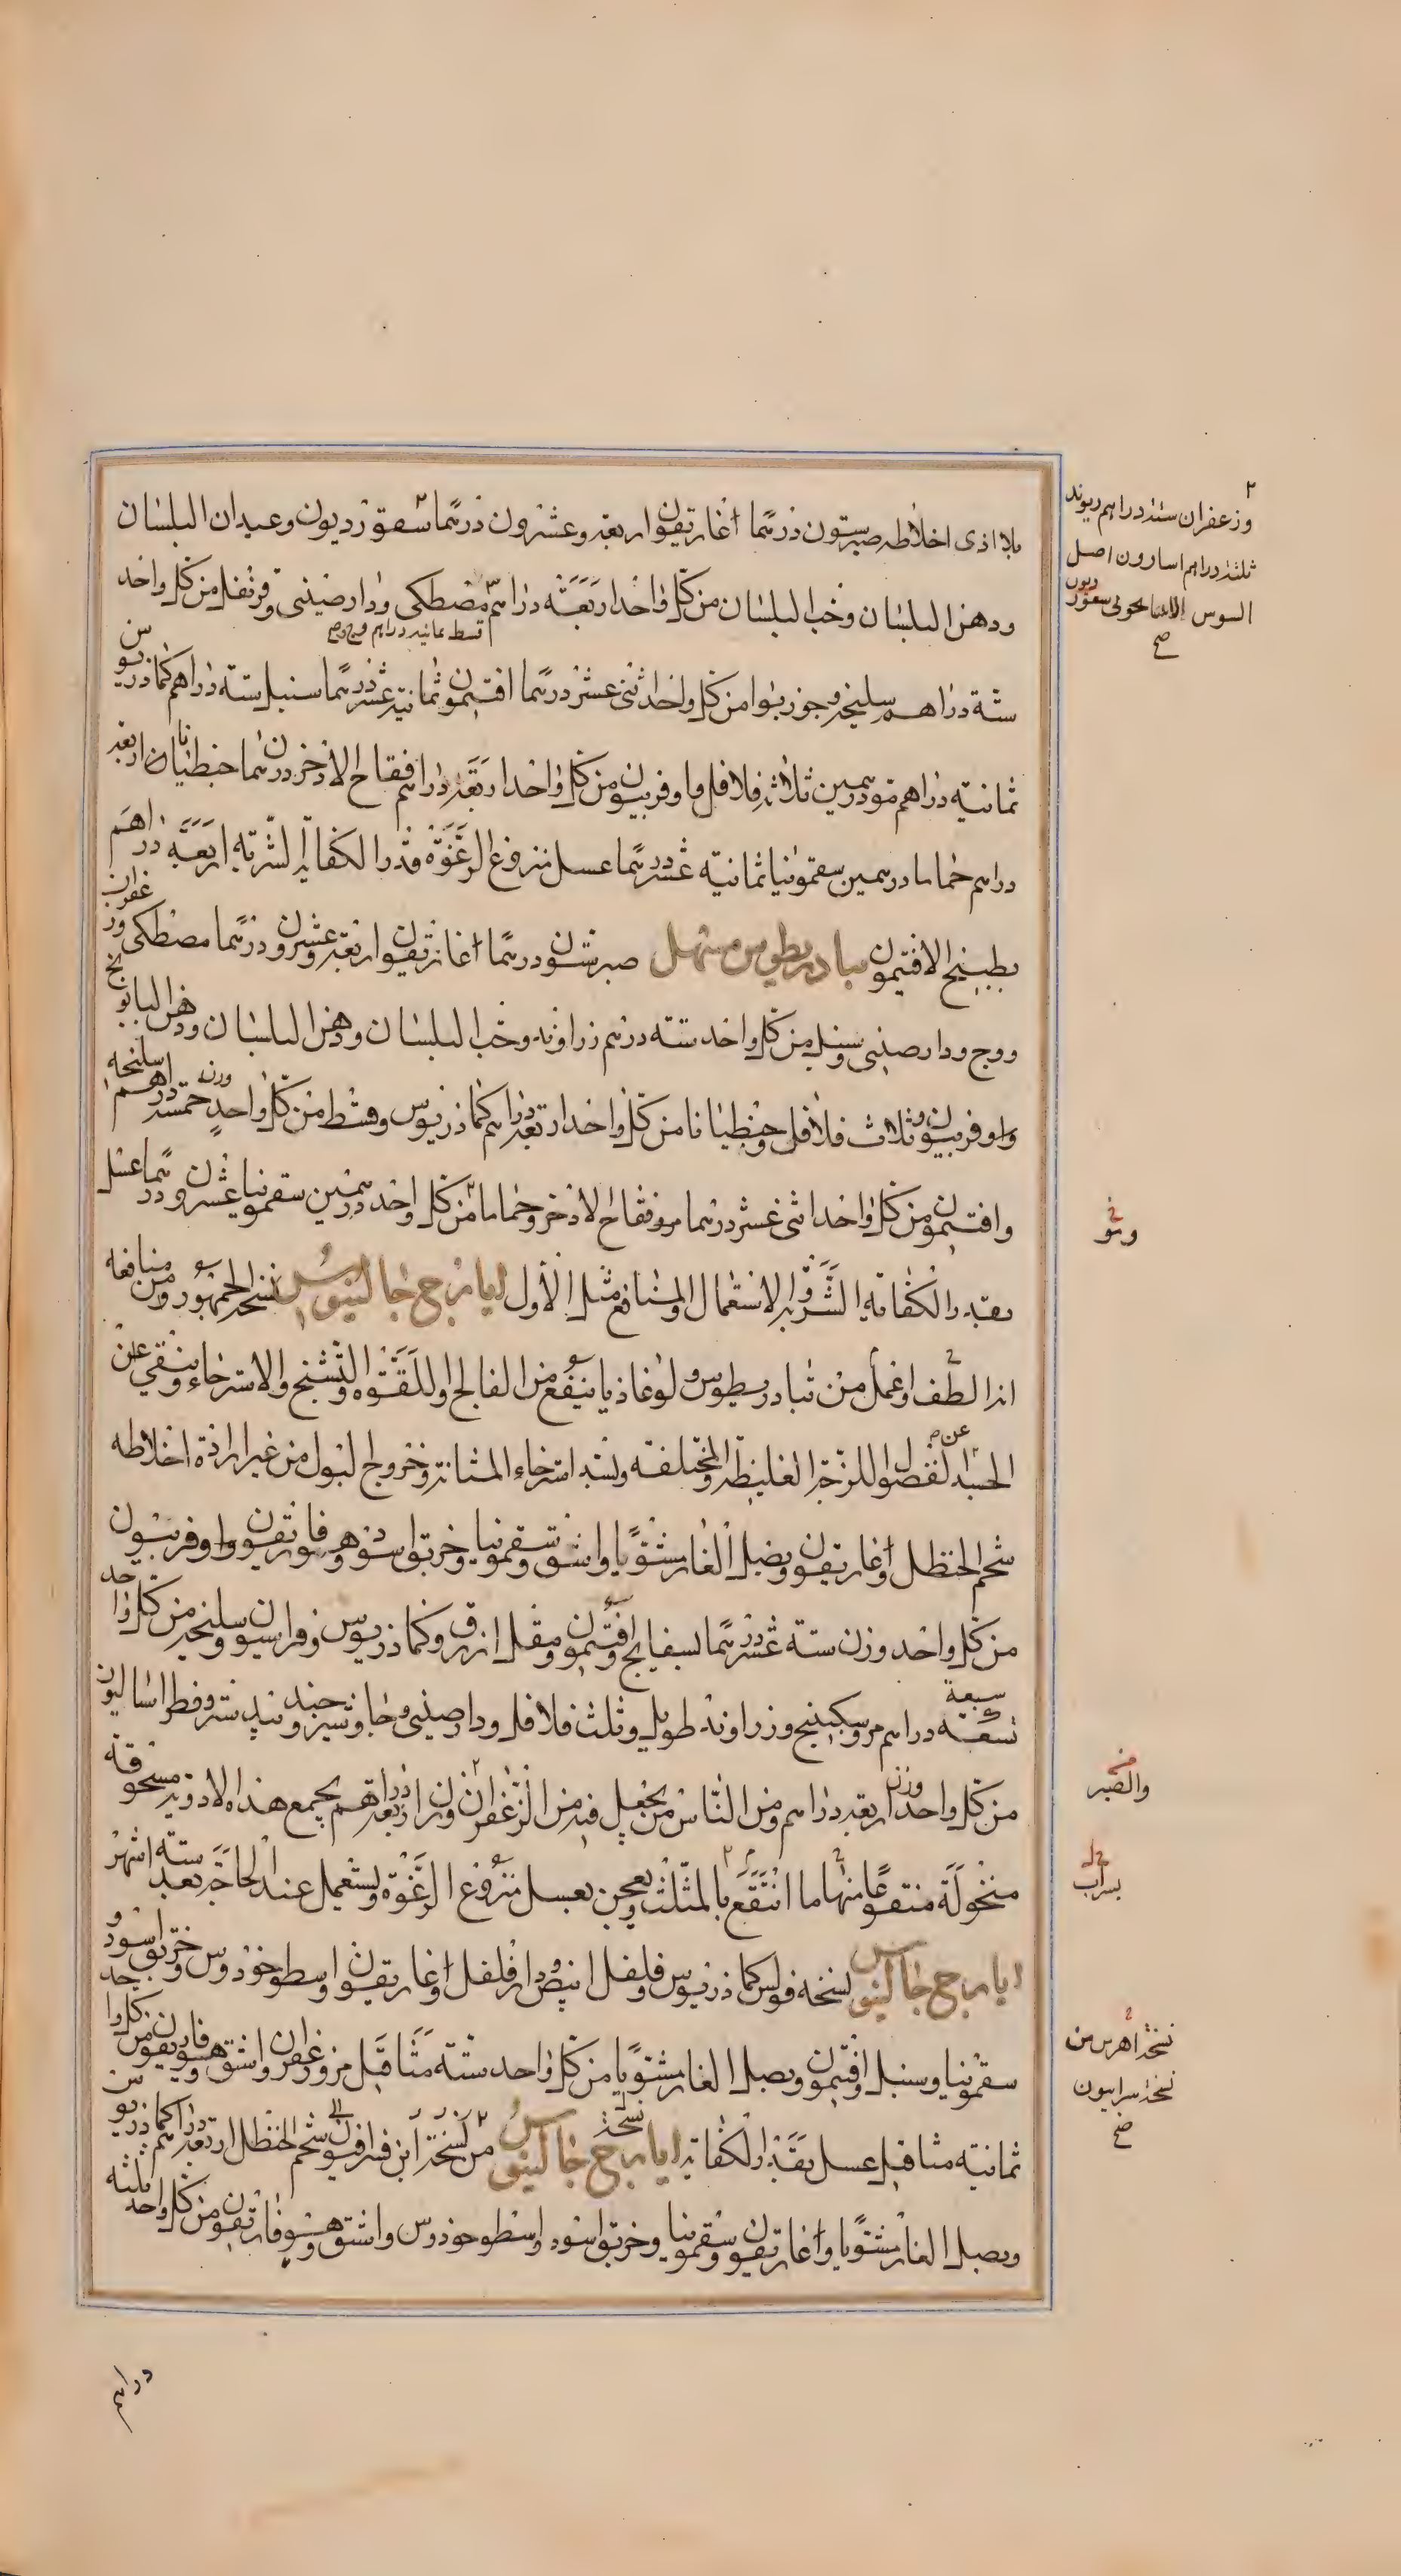 بلا اذى اخلاطه صبر ستون درهما اغاريقون اربعة وعشرون درهما سقورديون وعيدان البلسان
ودهن البلسان وحب البلسان من كل واحد اربعة دراهم مصطكى ودارصينى وقرنفل من كل واحد
ستة دراهم سليخه وجوزبوا من كل واحد اثنى عشر درهما افتيمون ثمانية عشر درهما سنبل ستة دراهم كماذريوس
ثمانية دراهم مو درهمين ثلاثة فلافل واوفربيون من كل واحد اربعة دراهم فقاح الاذخر درهما جنطيانا اربعة
دراهم حماما درهمين سقمونيا ثمانية عشر درهما عسل منزوع الرغوة قدر الكفاية الشربة اربعة دراهم
بطبيخ الافتيمون تيادريطوس مسهل صبر ستون درهما اغاريقون اربعة وعشرون درهما مصطكى وزعفران
ووج ودارصينى وسنبل من كل واحد ستة درهم زراوند وحب البلسان ودهن البلسان ودهن البابونج
واوفربيون وثلاث فلافل وجنطيانا من كل واحد اربعة دراهم كماذريوس وقسط من كل واحد وزن خمسة دراهم سليخه
وافتيمون من كل واحد اثنى عشر درهما مو وفقاح الاذخر وحماما من كل واحد درهمين سقمونيا عشرون درهما عسل
بقدر الكفاية الشربة والاستعمال والمنافع مثل الاول ايارج جالينوس نسخة الجمهور ومن منافعه
انه الطف واعمل من تيادريطوس ولوغاذيا ينفع من الفالج واللقوة والتشنج والاسترخاء وينقى عن
الجسد الفضول اللزجة الغليظة والمختلفة ولشد استرخاء المثانة وخروج البول من غير ارادة اخلاطه
شحم الحنظل واغاريقون وبصل الغار مشويا واشق وسقمونيا وخربق اسود وهوفاريقون واوفربيون
من كل واحد وزن ستة عشر درهما بسفايج وافتيمون ومقل ازرق وكماذريوس وفراسيون وسليخه من كل واحد
تسعة سبعة دراهم مر وسكبينج وزراوند طويل وثلث فلافل ودارصينى وجاوشير وجند بيدستر وفطراساليون
من كل واحد وزن اربعة دراهم ومن الناس من يجعل فيه من الزعفران وزن اربعة دراهم يجمع هذه الادوية مسحوقة
منخولة منتقعا منها ما انتقع بالمثلث ويعجن بعسل منزوع الرغوة ويستعمل عند الحاجة بعد ستة اشهر
ايارج جالينوس نسخة فولس كماذريوس وفلفل ابيض ودارفلفل واغاريقون واسطوخودوس وخربق اسود
سقمونيا وسنبل وافتيمون وبصل الغار مشويا من كل واحد ستة مثاقيل مر وزعفران واشق وهوفاريقون من كل واحد
ثمانية مثاقيل عسل بقدر الكفاية ايارج جالينوس نسخة من نسخة ابن سرافيون شحم الحنظل اربعة دراهم كماذريوس
وبصل الغار مشويا واغاريقون وسقمونيا وخربق اسود واسطوخودوس واشق وهوفاريقون من كل واحد ثلثة
دراهم
قسط ثمانية دراهم
وزعفران ستة دراهم ريوند
ثلثة دراهم اسارون اصل
السوس الاسمانجونى
صح
ومو
والصبر
بشراب
نسخة اهرن من
نسخة سرابيون
صح